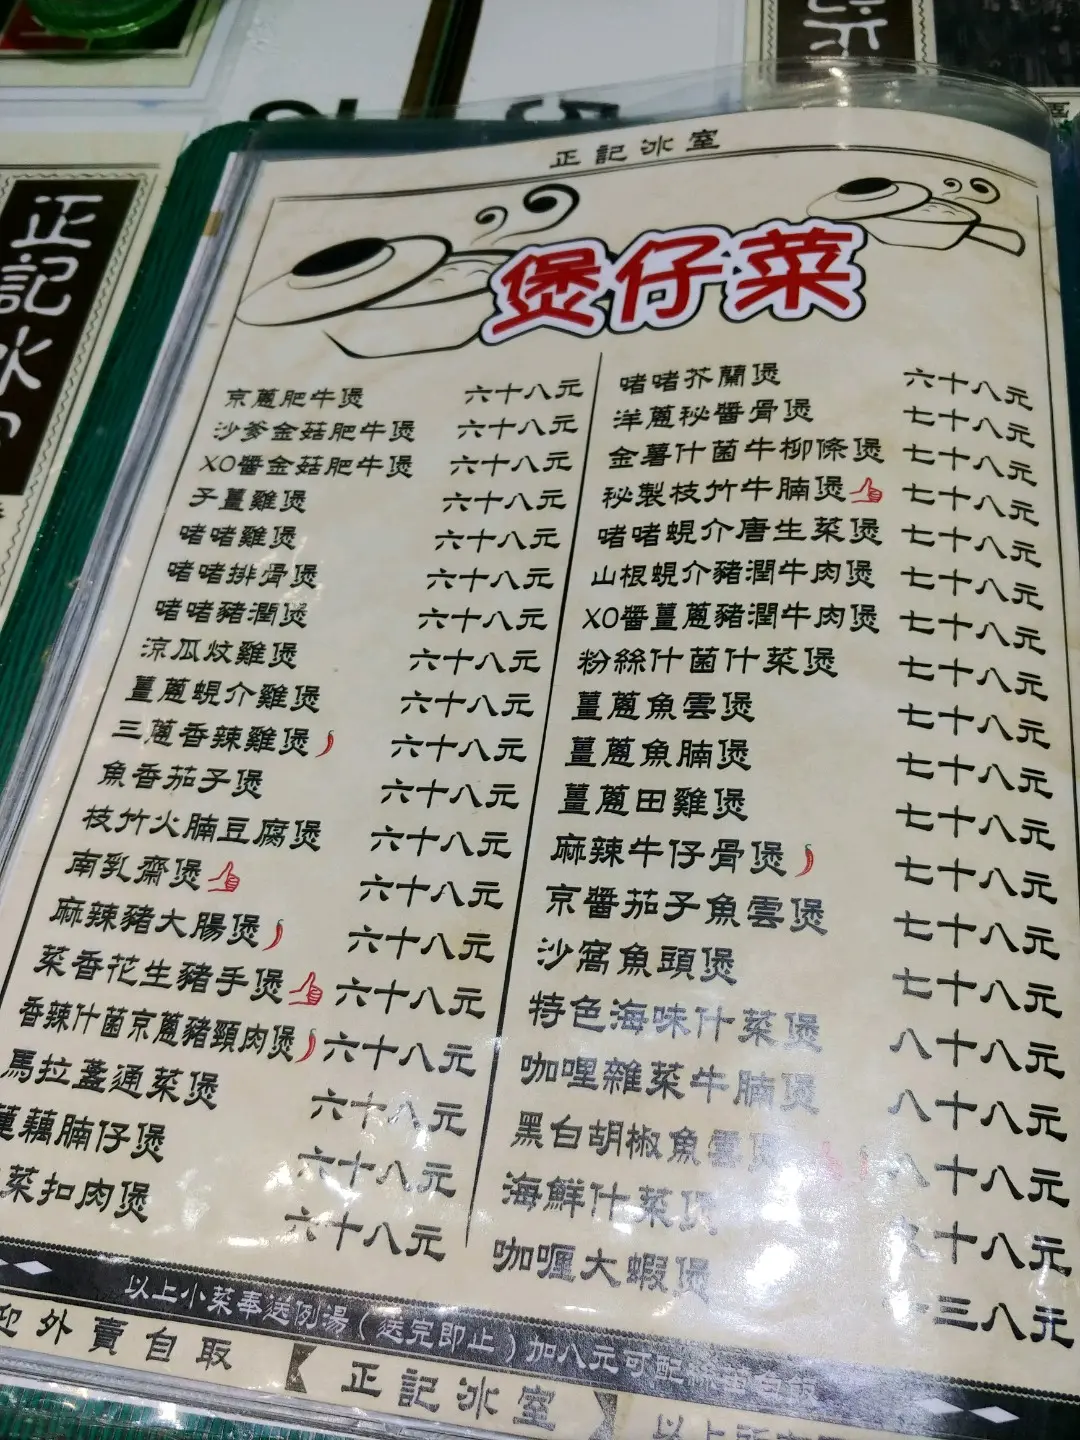 正記冰室
煲仔菜
京蔥肥牛煲 六十八元
沙爹金菇肥牛煲 六十八元
XO醬金菇肥牛煲 六十八元
子薑雞煲 六十八元
啫啫雞煲 六十八元
啫啫排骨煲 六十八元
啫啫豬潤煲 六十八元
涼瓜炆雞煲 六十八元
薑蔥蜆介雞煲 六十八元
三蔥香辣雞煲 六十八元
魚香茄子煲 六十八元
枝竹火腩豆腐煲 六十八元
南乳齋煲 六十八元
麻辣豬大腸煲 六十八元
菜香花生豬手煲 六十八元
香辣什菌京蔥豬頸肉煲 六十八元
馬拉盞通菜煲 六十八元
蓮藕腩仔煲 六十八元
菜扣肉煲 六十八元
啫啫芥蘭煲 六十八元
洋蔥秘醬骨煲 七十八元
金薯什菌牛柳條煲 七十八元
秘製枝竹牛腩煲 七十八元
啫啫蜆介唐生菜煲 七十八元
山根蜆介豬潤牛肉煲 七十八元
XO醬薑蔥豬潤牛肉煲 七十八元
粉絲什菌什菜煲 七十八元
薑蔥魚雲煲 七十八元
薑蔥魚腩煲 七十八元
薑蔥田雞煲 七十八元
麻辣牛仔骨煲 七十八元
京醬茄子魚雲煲 七十八元
沙窩魚頭煲 七十八元
特色海味什菜煲 八十八元
咖哩雜菜牛腩煲 八十八元
黑白胡椒魚雲煲 八十八元
海鮮什菜煲 十八元
咖喱大蝦煲 一三八元
以上小菜奉送例湯（送完即止）加八元可配
迎外賣自取
正記冰室
正記冰